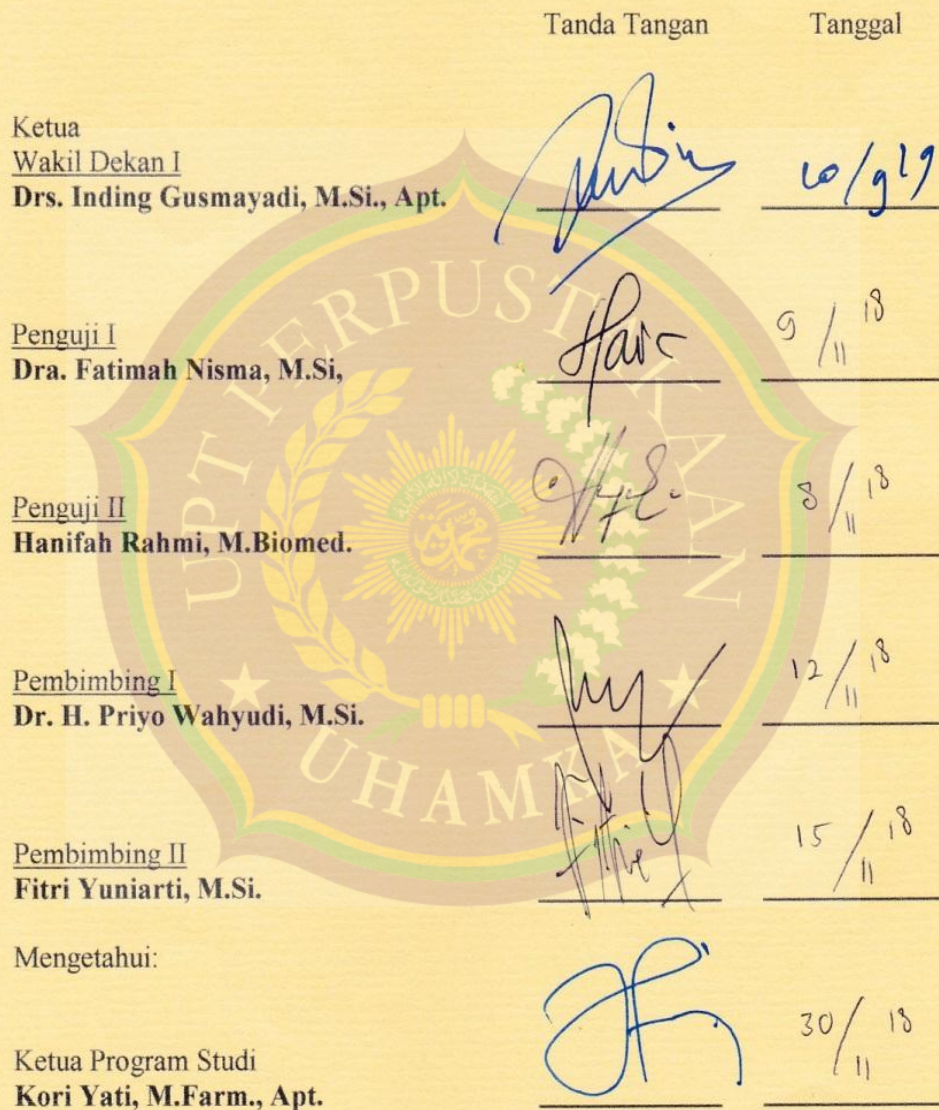 Tanda Tangan Tanggal
Ketua
Wakil Dekan I
Drs. Inding Gusmayadi, M.Si., Apt.
Penguji I
Dra. Fatimah Nisma, M.Si,
9/11 18
Penguji II
Hanifah Rahmi, M.Biomed.
8/11 18
Pembimbing I
Dr. H. Priyo Wahyudi, M.Si.
12/11 18
Pembimbing II
Fitri Yuniarti, M.Si.
15/11 18
Mengetahui:
Ketua Program Studi
Kori Yati, M.Farm., Apt.
30/11 18
UPT PERPUSTAKAAN
UHAMKA